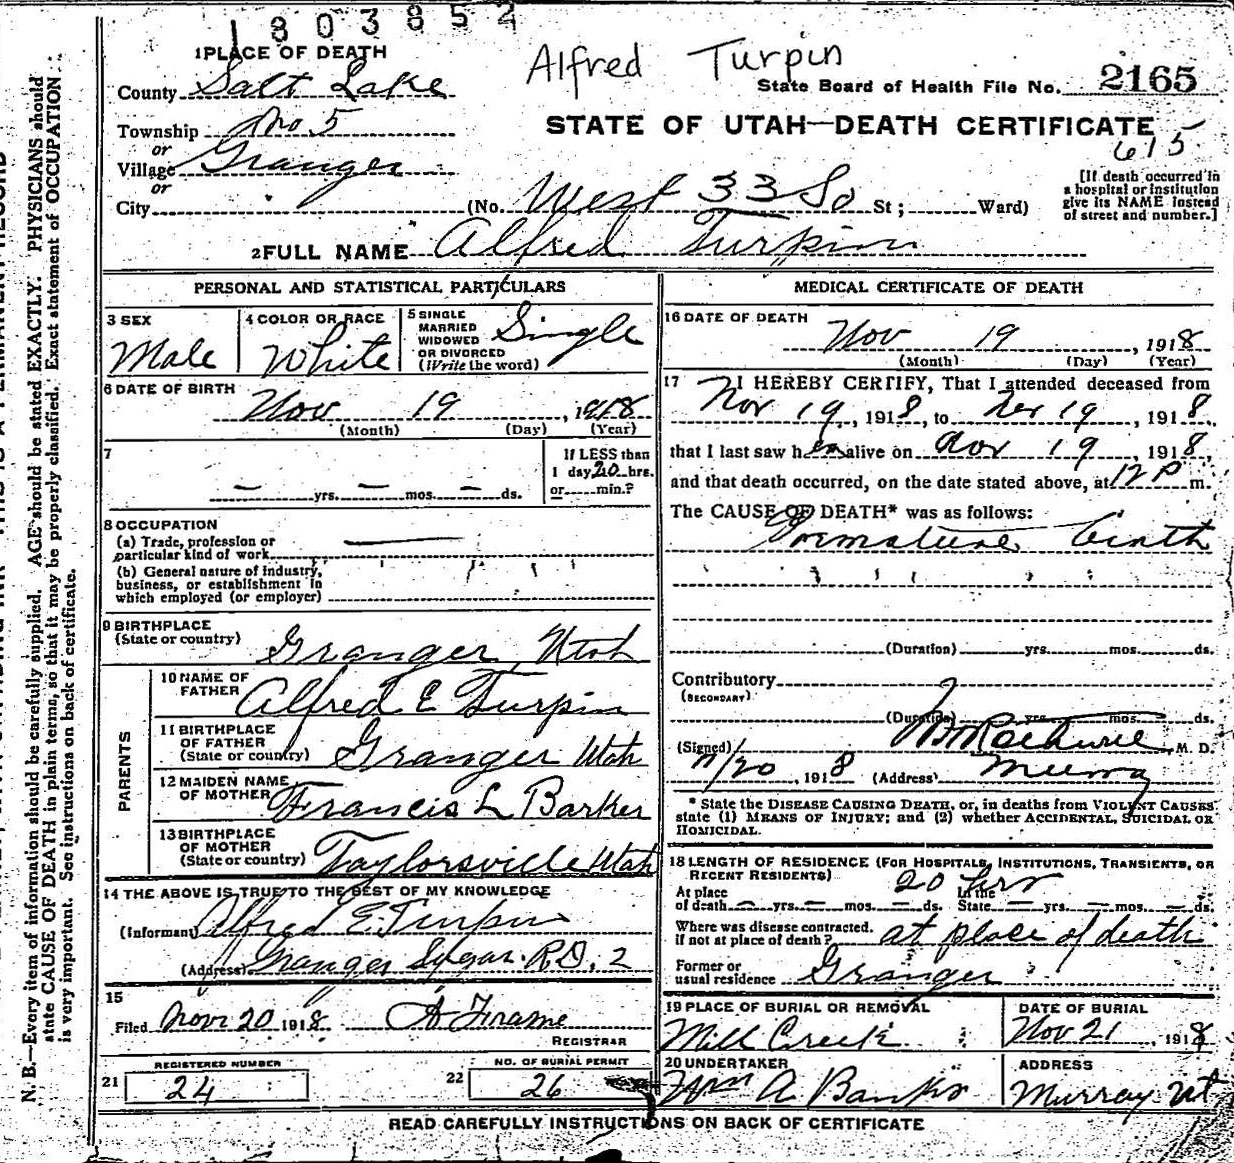 1803852
Alfred Turpin
1 PLACE OF DEATH
County Salt Lake
State Board of Health File No. 2165
Township No 5
STATE OF UTAH—DEATH CERTIFICATE
615
or
Village Granger
or
City (No. West 33 So St; Ward)
[If death occurred in
a hospital or institution
give its NAME instead
of street and number.]
2 FULL NAME Alfred Turpin
PERSONAL AND STATISTICAL PARTICULARS
3 SEX
Male
4 COLOR OR RACE
White
5 SINGLE
MARRIED
WIDOWED
OR DIVORCED
(Write the word)
Single
6 DATE OF BIRTH
Nov 19, 1918
(Month) (Day) (Year)
7
— yrs. — mos. — ds.
If LESS than
1 day 20 hrs.
or min.?
8 OCCUPATION
(a) Trade, profession or
particular kind of work
(b) General nature of industry,
business, or establishment in
which employed (or employer)
9 BIRTHPLACE
(State or country) Granger, Utah
PARENTS
10 NAME OF
FATHER Alfred E Turpin
11 BIRTHPLACE
OF FATHER
(State or country) Granger Utah
12 MAIDEN NAME
OF MOTHER Francis L Barker
13 BIRTHPLACE
OF MOTHER
(State or country) Taylorsville Utah
14 THE ABOVE IS TRUE TO THE BEST OF MY KNOWLEDGE
(Informant) Alfred E. Turpin
(Address) Granger R.D. 2
15
Filed Nov 20 1918 A Frame
REGISTRAR
REGISTERED NUMBER
21 24
NO. OF BURIAL PERMIT
22 26
MEDICAL CERTIFICATE OF DEATH
16 DATE OF DEATH
Nov 19, 1918
(Month) (Day) (Year)
17 I HEREBY CERTIFY, That I attended deceased from
Nov 19, 1918, to Nov 19, 1918,
that I last saw h alive on Nov 19, 1918,
and that death occurred, on the date stated above, at 12 P m.
The CAUSE OF DEATH* was as follows:
Premature birth
(Duration) yrs. mos. ds.
Contributory
(SECONDARY)
(Duration) yrs. mos. ds.
(Signed) M. D.
11/20, 1918 (Address) Murray
* State the DISEASE CAUSING DEATH, or, in deaths from VIOLENT CAUSES,
state (1) MEANS OF INJURY; and (2) whether ACCIDENTAL, SUICIDAL OR
HOMICIDAL.
18 LENGTH OF RESIDENCE (FOR HOSPITALS, INSTITUTIONS, TRANSIENTS, OR
RECENT RESIDENTS) 20 hrs
At place In the
of death — yrs. — mos. — ds. State — yrs. — mos. — ds.
Where was disease contracted,
if not at place of death? at place of death
Former or
usual residence Granger
19 PLACE OF BURIAL OR REMOVAL
Mill Creek
DATE OF BURIAL
Nov 21, 1918
20 UNDERTAKER
Wm A Banks
ADDRESS
Murray Ut
READ CAREFULLY INSTRUCTIONS ON BACK OF CERTIFICATE
N. B.—Every item of information should be carefully supplied. AGE should be stated EXACTLY. PHYSICIANS should
state CAUSE OF DEATH in plain terms, so that it may be properly classified. Exact statement of OCCUPATION
is very important. See instructions on back of certificate.